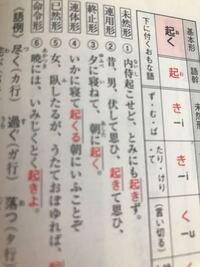 基本形
語幹
未然形
起く
起
き
-i
き
-i
く
-u
下に付くおもな語
ず・む・ば
たり・けり
て
(言い切る)
未然形 ① 内侍起こせど、とみにも起きず。
連用形 ② 昔、男、伏して思ひ、起きて思ひ、
終止形 ③ 夕に寝ねて、朝に起く。
連体形 ④ いかに寝て起くる朝にいふことぞ
已然形 ⑤ 女、臥したるが、うたておぼゆれば、起
命令形 ⑥ 暁には、いみじくとく起きよ。
〈語例〉 尽く(カ行) 過ぐ(ガ行) 落つ(タ行)